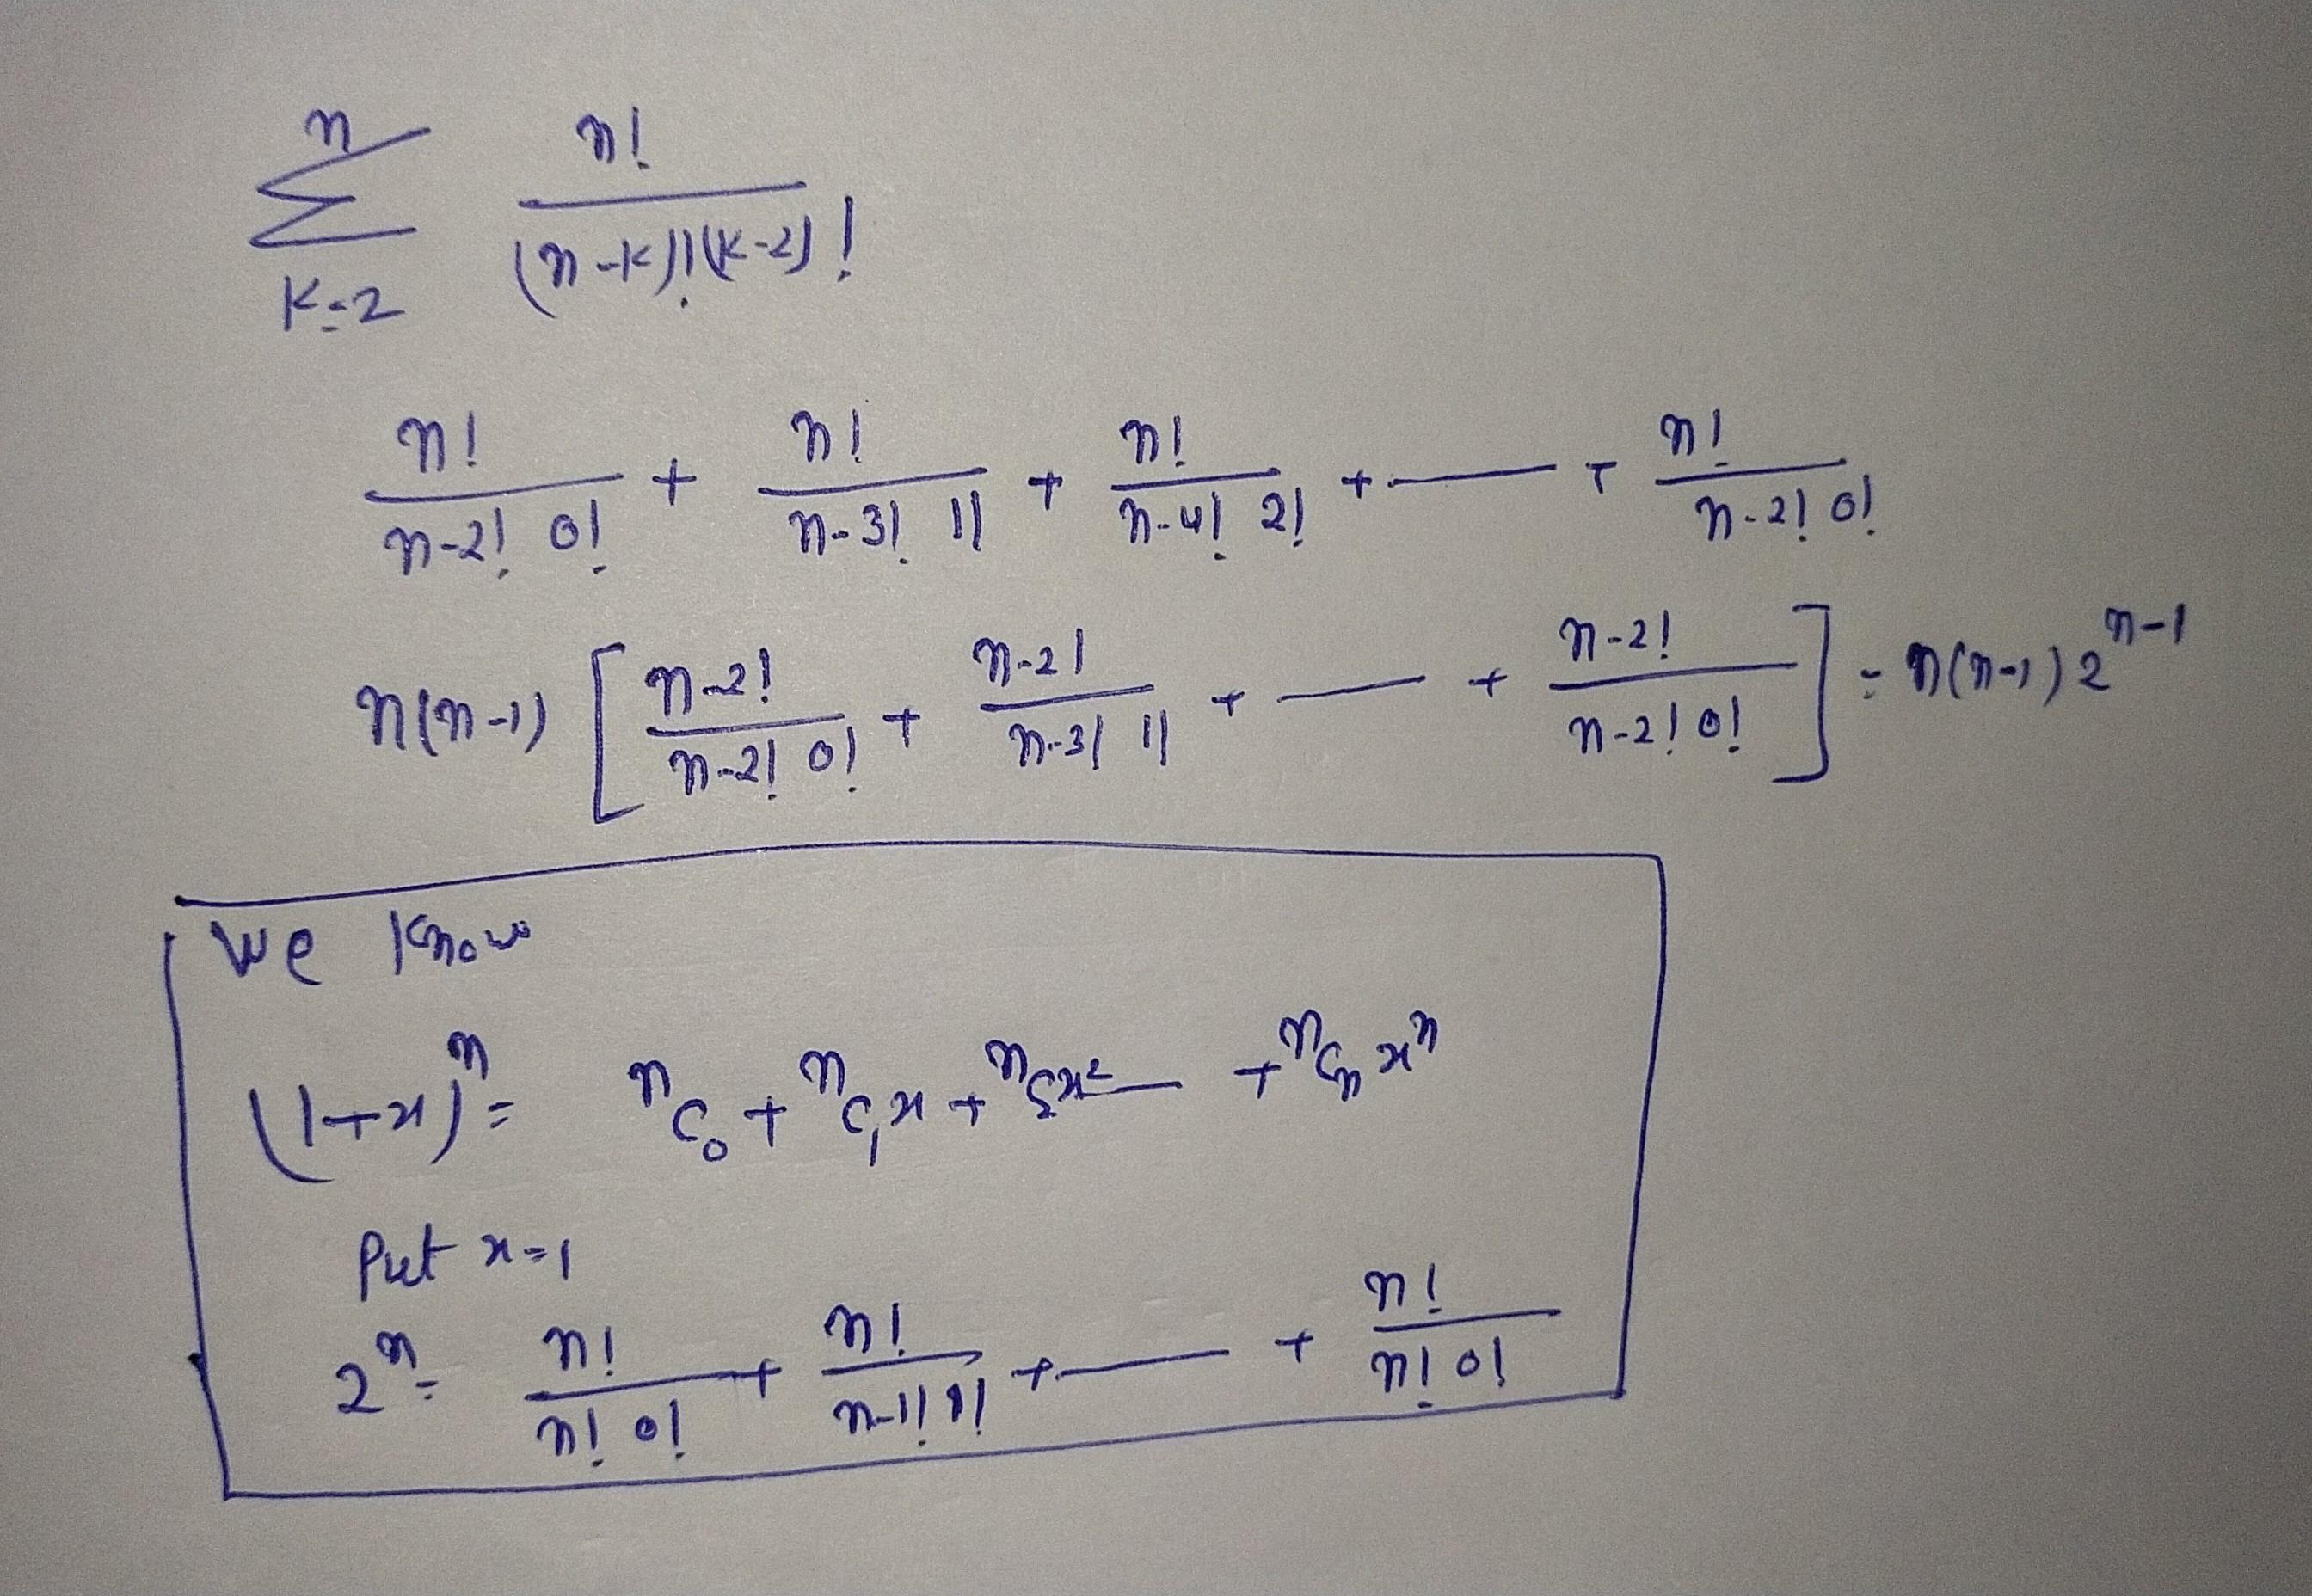 n ∑ K=2 n! / (n-k)!(k-2)!
n! / n-2! 0! + n! / n-3! 1! + n! / n-4! 2! + — + n! / n-2! 0!
n(n-1) [ n-2! / n-2! 0! + n-2! / n-3! 1! + — + n-2! / n-2! 0! ] = n(n-1) 2^{n-1}
we know
(1+x)^n = ^nC_0 + ^nC_1 x + ^nC_2 x^2 — + ^nC_n x^n
Put x=1
2^n = n! / n! 0! + n! / n-1! 1! + — + n! / n! 0!